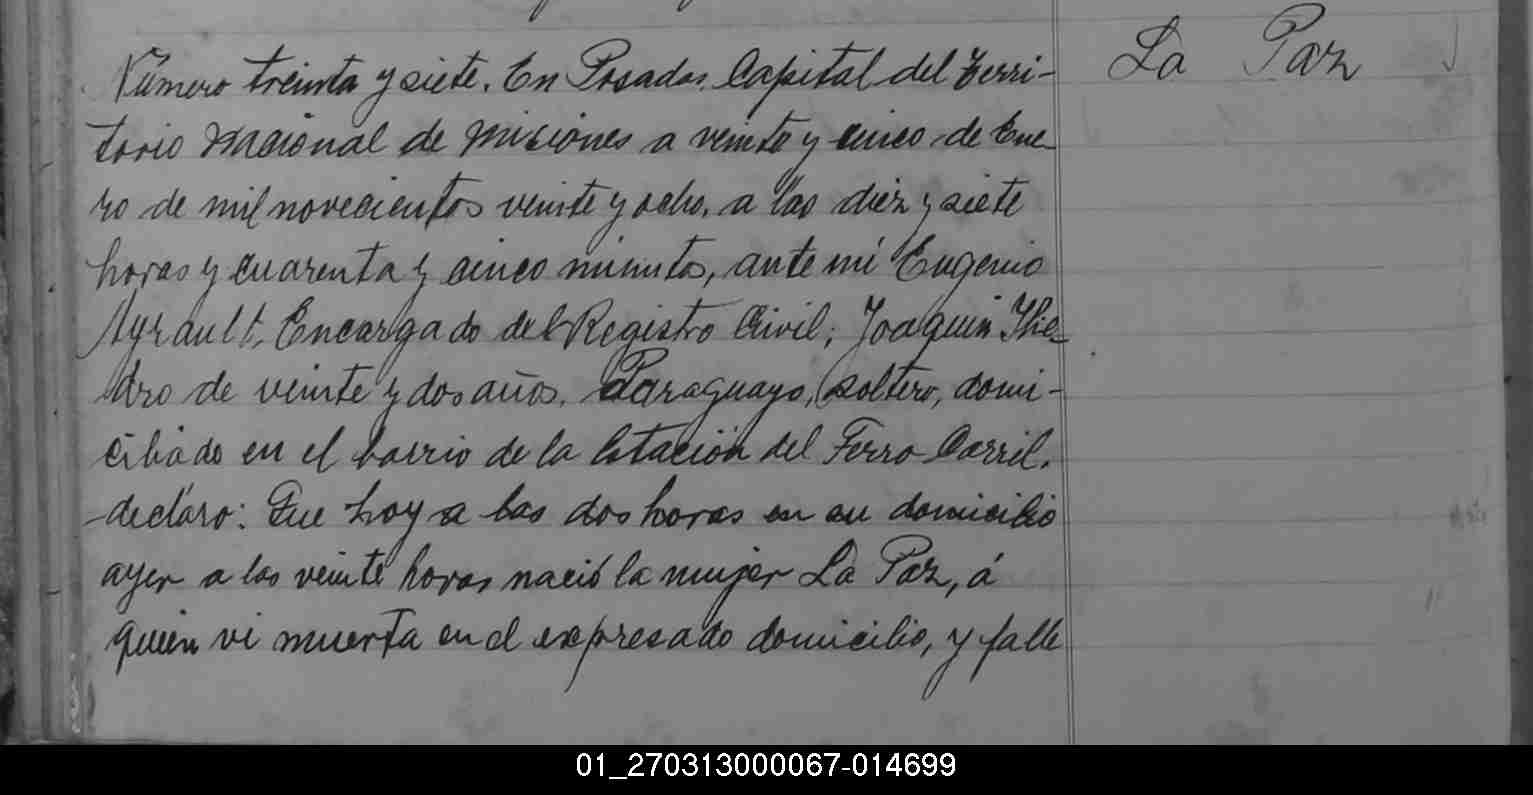 La Paz
Número treinta y siete. En Posadas, Capital del Terri-
torio Nacional de Misiones a veinte y cinco de Ene-
ro de mil novecientos veinte y ocho, a las diez y siete
horas y cuarenta y cinco minutos, ante mí Eugenio
Ayrault, Encargado del Registro Civil; Joaquin
dro de veinte y dos años, Paraguayo, soltero, domi-
ciliado en el barrio de la Estación del Ferro Carril,
declaro: Que hoy a las dos horas en su domicilio
ayer a las veinte horas nació la mujer La Paz, á
quien vi muerta en el expresado domicilio, y falle
01_270313000067-014699